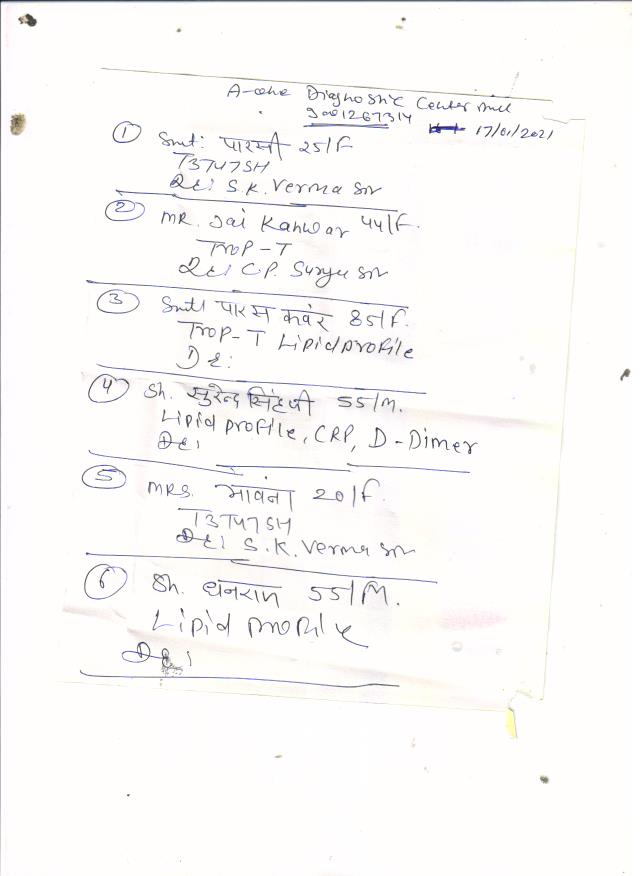 Diagnostic Center
9001267314 17/01/2021
① Smt: पारसी 25/F
T3T4TSH
S.K. Verma Sir
② MR. Jai Kanwar 44/F.
Trop-T
C.P. Surya Sir
③ Smt पारस कवंर 85/F.
Trop-T Lipid profile
④ Sh. सुरेन्द्र सिंहजी 55/M.
Lipid profile, CRP, D-Dimer
⑤ MRS. भावना 20/F.
T3T4TSH
S.K. Verma Sir
⑥ Sh. धनराज 55/M.
Lipid profile